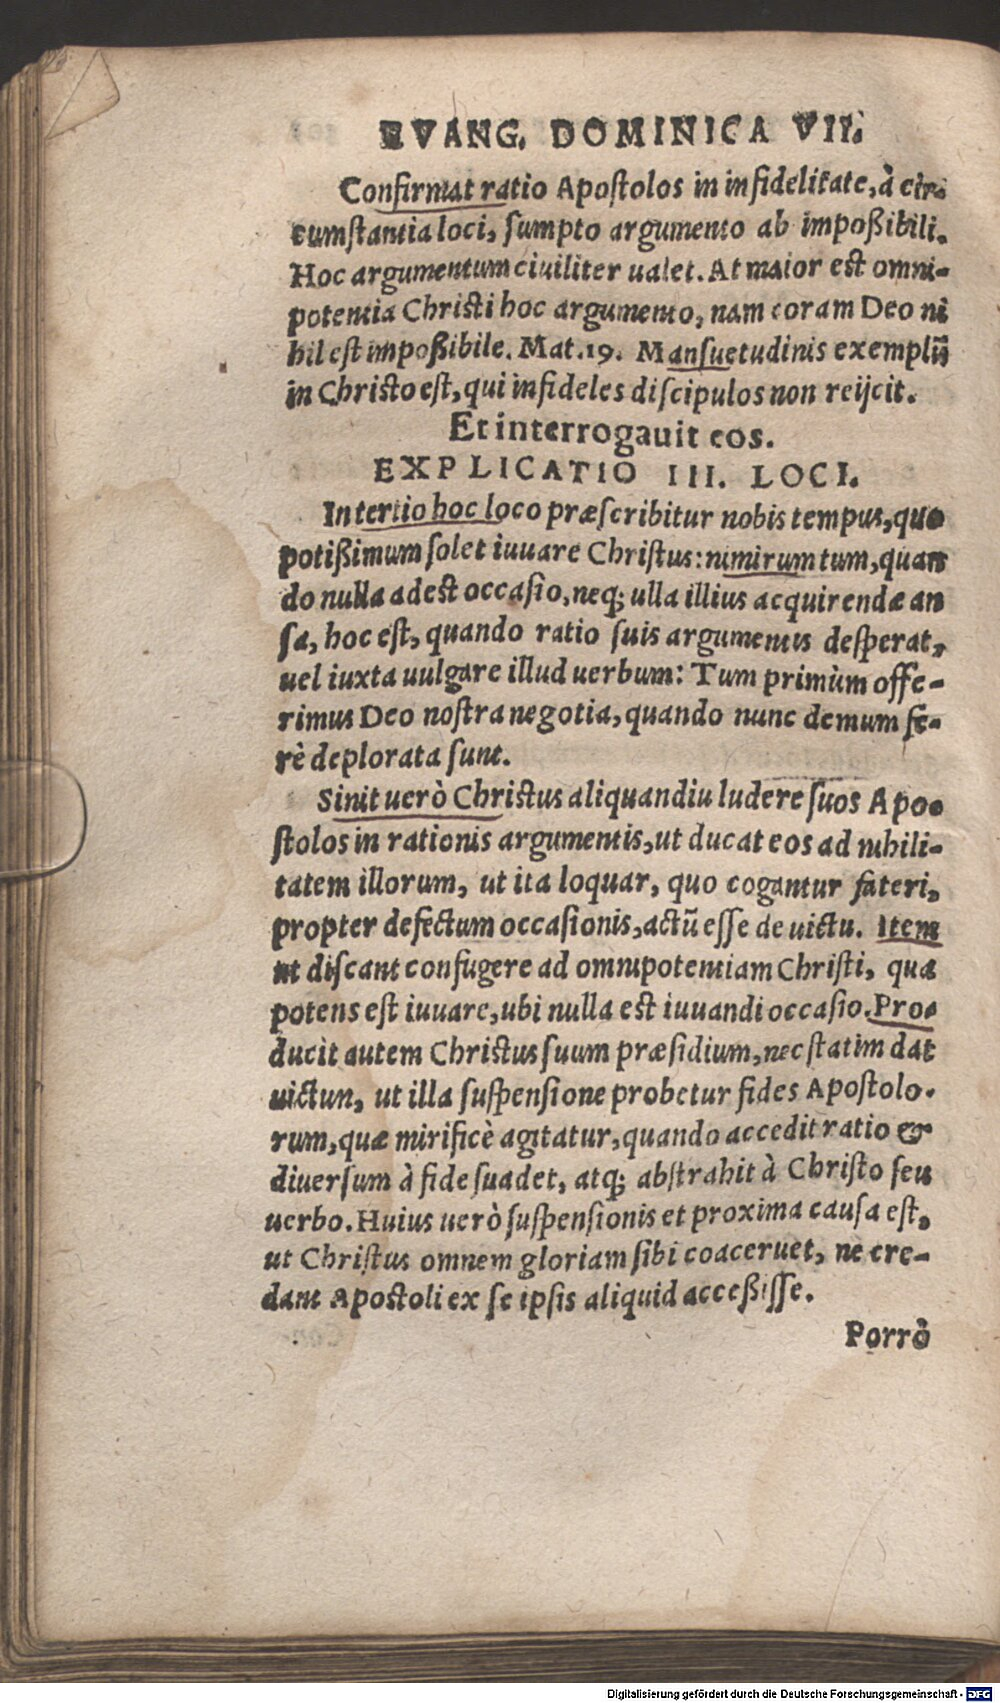 EVANG. DOMINICA VII.
Confirmat ratio Apoſtolos in infidelitate, à cir-
cumſtantia loci, ſumpto argumento ab impoßibili.
Hoc argumentum ciuiliter ualet. At maior est omni-
potentia Christi hoc argumento, nam coram Deo ni
hil eſt impoßibile. Mat. 19. Manſuetudinis exemplũ
in Chriſto eſt, qui infideles diſcipulos non reijcit.
Et interrogauit eos.
EXPLICATIO III. LOCI.
In tertio hoc loco præſcribitur nobis tempus, quo
potißimum ſolet iuuare Chriſtus: nimirum tum, quan
do nulla adest occaſio, neq; ulla illius acquirendæ an
ſa, hoc eſt, quando ratio ſuis argumentis deſperat,
uel iuxta uulgare illud uerbum: Tum primùm offe-
rimus Deo noſtra negotia, quando nunc demum fe-
rè deplorata ſunt.
Sinit uerò Chriſtus aliquandiu ludere ſuos Apo-
ſtolos in rationis argumentis, ut ducat eos ad nihili-
tatem illorum, ut ita loquar, quo cogantur fateri,
propter defectum occaſionis, actũ eſſe de uictu. Item
ut diſcant confugere ad omnipotentiam Chriſti, quæ
potens eſt iuuare, ubi nulla est iuuandi occaſio. Pro-
ducit autem Chriſtus ſuum præſidium, nec ſtatim dat
uictum, ut illa ſuſpenſione probetur fides Apoſtolo-
rum, quæ mirificè agitatur, quando accedit ratio &
diuerſum à fide ſuadet, atq; abſtrahit à Chriſto ſeu
uerbo. Huius uerò ſuſpenſionis et proxima cauſa eſt,
ut Chriſtus omnem gloriam ſibi coaceruet, ne cre-
dant Apoſtoli ex ſe ipſis aliquid acceßiſſe.
Porrò
Digitalisierung gefördert durch die Deutsche Forschungsgemeinschaft - DFG